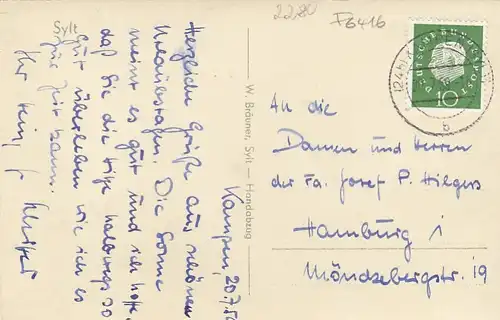 Sylt
22,80
F6416
Kampen, 20.7.59
Herzliche Grüße aus schönen
Urlaubstagen. Die Sonne
meint es gut und ich hoffe,
daß Sie die Hitze halbwegs so
gut überleben wie ich es
hier tun kann.
Ihr
W. Bräuner, Sylt — Handabzug
DEUTSCHE BUNDESPOST
10
b
An die
Damen und Herren
der Fa. Josef P. Hilgers
Hamburg 1
Mönckebergstr. 19